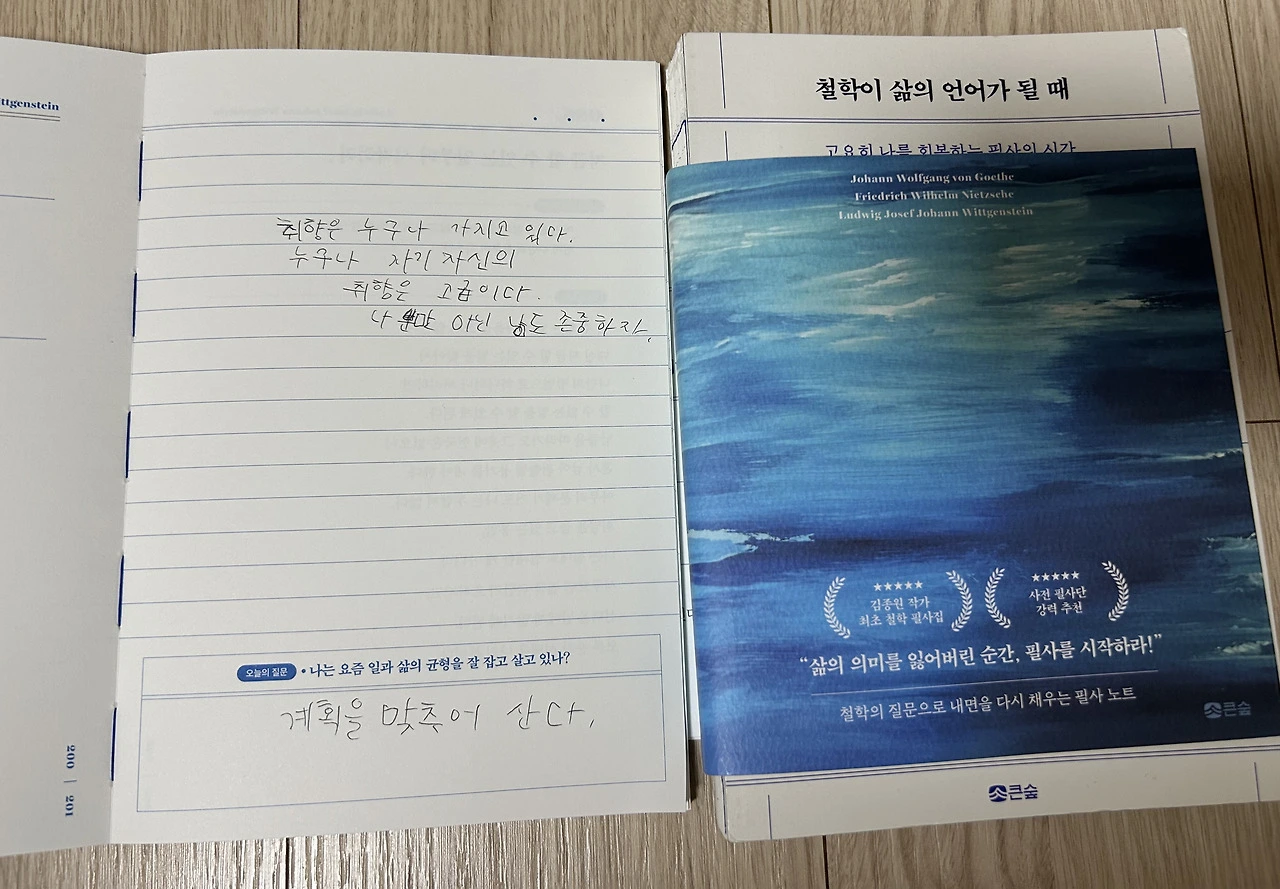 ttgenstein
취향은 누구나 가지고 있다.
누구나 자기 자신의
취향은 고급이다.
나 뿐만 아닌 남도 존중하자.
오늘의 질문 • 나는 요즘 일과 삶의 균형을 잘 잡고 살고 있나?
계획을 맞추어 산다.
200 | 201
철학이 삶의 언어가 될 때
고요히 나를 회복하는 필사의 시간
Johann Wolfgang von Goethe
Friedrich Wilhelm Nietzsche
Ludwig Josef Johann Wittgenstein
★★★★★
김종원 작가
최초 철학 필사집
★★★★★
사전 필사단
강력 추천
“삶의 의미를 잃어버린 순간, 필사를 시작하라!”
철학의 질문으로 내면을 다시 채우는 필사 노트
큰숲
큰숲